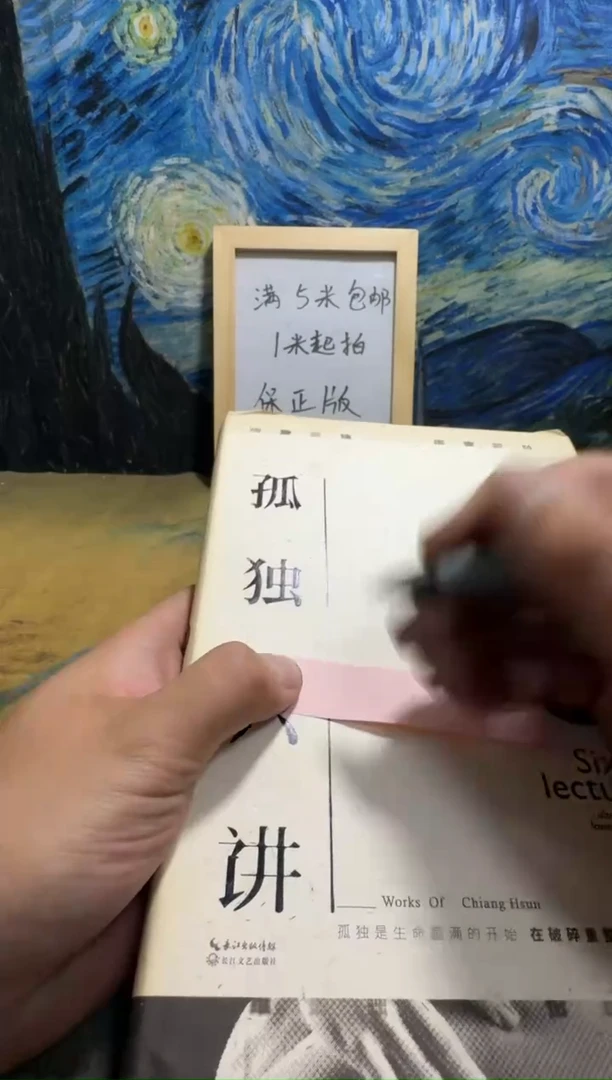 满5米包邮
1米起拍
保正版
孤
独
讲
lectu
Works Of Chiang Hsun
孤独是生命圆满的开始 在破碎重
长江出版传媒
长江文艺出版社